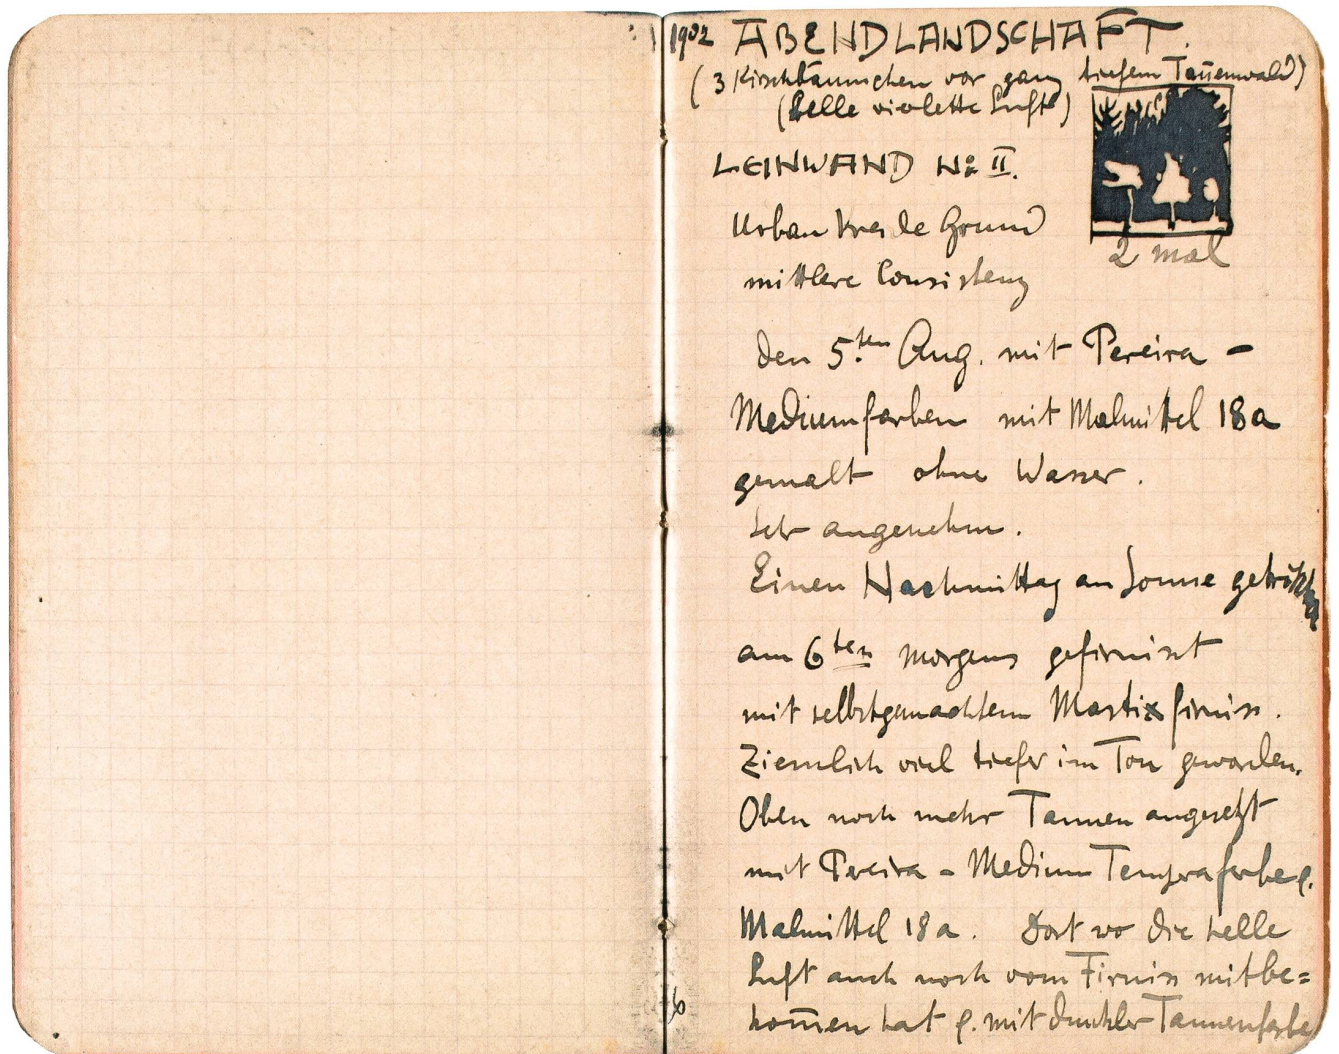 1902 ABENDLANDSCHAFT.
(3 Kirschbäumchen vor ganz tiefem Tan̄enwald)
(helle violette Luft)
LEINWAND No II.
Urban Kreide Grund
2 mal
mittlere Consistenz
den 5.ten Aug. mit Pereira-
Mediumfarben mit Malmittel 18a
gemalt ohne Wasser.
Sehr angenehm.
Einen Nachmittag an Sonne getrocknet
am 6ten morgens gefirnisst
mit selbstgemachtem Mastixfirniss.
Ziemlich viel tiefer im Ton geworden.
Oben noch mehr Tannen angesetzt
mit Pereira-Medium Temperafarbe &
Malmittel 18a. Dort wo die helle
Luft auch noch vom Firniss mitbe=
kom̄en hat & mit dunkler Tannenfarbe
6